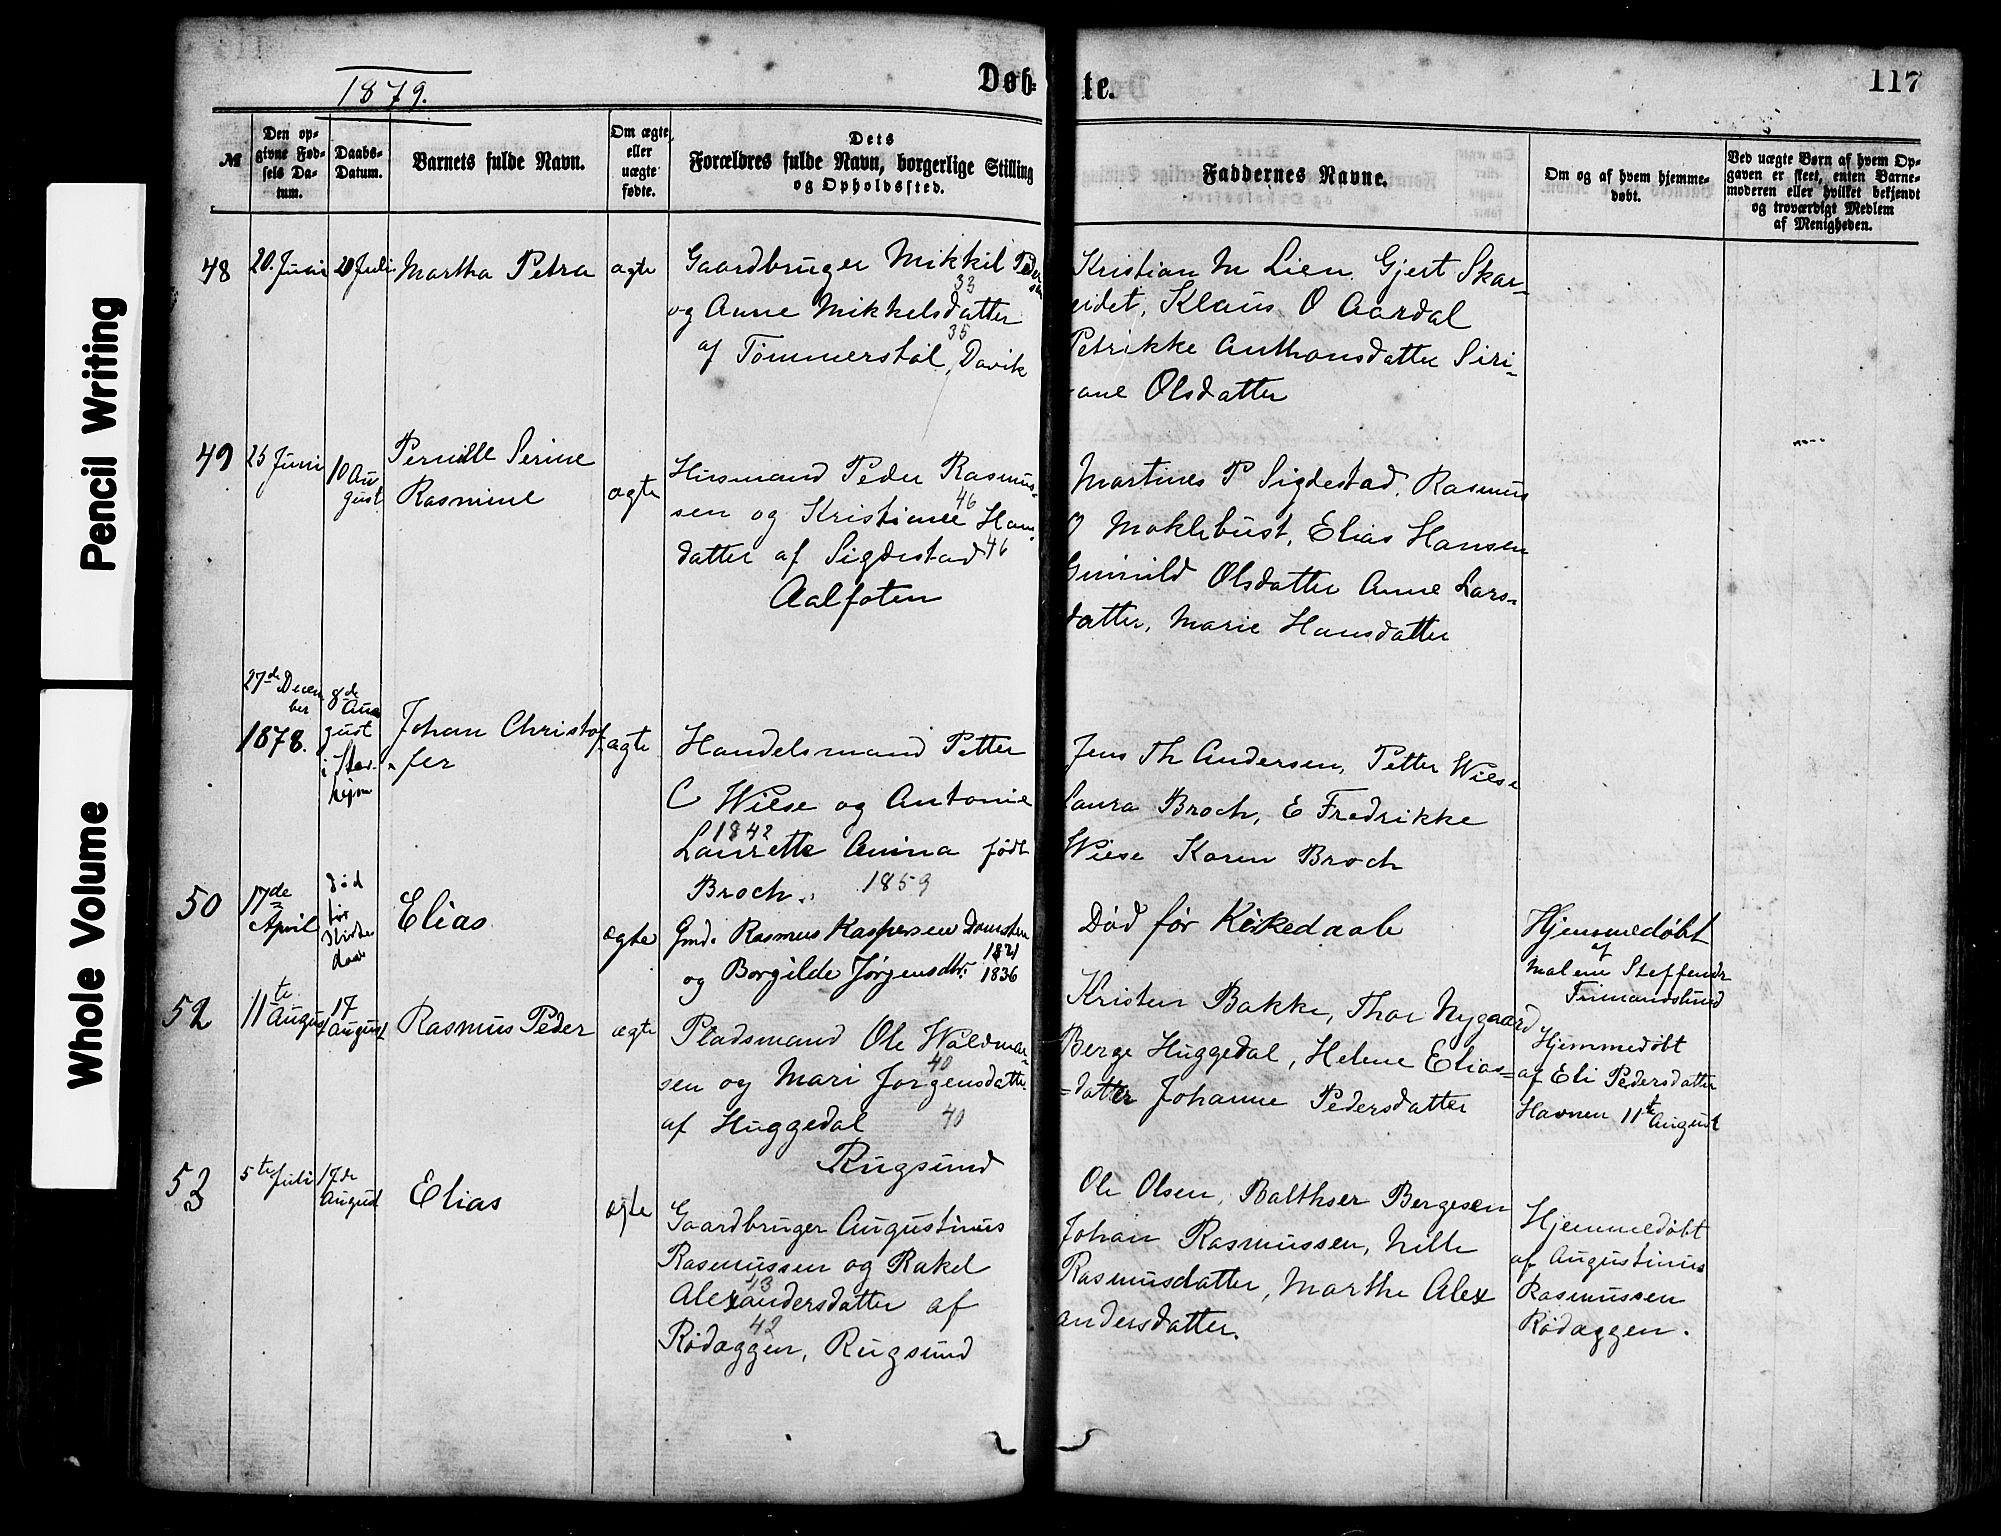 Pencil Writing
Whole Volume
1879.
Døb-
te.
117
№
Den op-
givne Fød-
sels Da-
tum.
Daabs-
Datum.
Barnets fulde Navn.
Om ægte
eller
uægte
fødte.
Dets
Forældres fulde Navn, borgerlige Stilling
og Opholdssted.
Faddernes Navne.
Om og af hvem hjemme-
døbt.
Ved uægte Børn af hvem Op-
gaven er skeet, enten Barne-
moderen eller hvilket bekjendt
og troværdigt Medlem
af Menigheden.
48
20. Juni
20 Juli
Martha Petra
ægte
Gaardbruger Mikkel Peder
sen
33
og Anne Mikkelsdatter
35
af Tømmerstøl, Davik
Kristian M Lien. Gjert Skar-
eidet, Klaus O Aardal
Petrikke Anthonsdatter Siri-
ane Olsdatter
49
25 Juni
10 Au
gust
Pernille Serine
Rasmine
ægte
Husmand Peder Rasmus-
46
sen og Kristiane Hans-
datter af Sigdestad 46
Aalfoten
Martines P Sigdestad, Rasmus
O Moklebust, Elias Hansen
Gunnild Olsdatter Anne Lars-
datter, Marie Hansdatter
27de Decem
ber
1878.
8de
Au
gust
i
Johan Christof-
fer
ægte
Handelsmand Petter
C Wiese og Antonie
1842
Laurette Anina født
Broch. 1859
Jens Th Andersen, Petter Wiese
Laura Broch, E Fredrikke
Wiese Karen Broch
50
17de
April
død
før
Kirke
daab
Elias
ægte
Gmd. Rasmus Kaspersen Domsten
1821
og Borgilde Jørgensdtr. 1836
Død før Kirkedaab
Hjemmedøbt
af
Malene Steffensdr
52
11te
August
17
August
Rasmus Peder
ægte
Pladsmand Ole Waldmar-
40
sen og Mari Jørgensdatter
af Huggedal 40
Rugsund
Kristen Bakke, Thor Nygaard
Berge Huggedal, Helene Elias-
-datter Johanne Pedersdatter
Hjemmedøbt
af Eli Pedersdatter
Havnen 11te August
53
5te Juli
17de
August
Elias
ægte
Gaardbruger Augustinus
Rasmussen og Rakel
43
Alexandersdatter af
42
Rødaggen, Rugsund
Ole Olsen, Balthser Bergesen
Johan Rasmussen, Nille
Rasmusdatter, Marthe Alex
andersdatter.
Hjemmedøbt
af Augustinus
Rasmussen
Rødaggen.